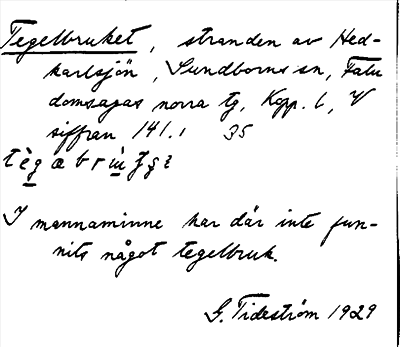 Tegelbruket, stranden av Hed-
karlsjön, Sundborns sn, Falu
domsagas norra tg, Kopp. l, V
siffran 141.1 35
I mannaminne har där inte fun-
nits något tegelbruk.
G. Tideström 1929